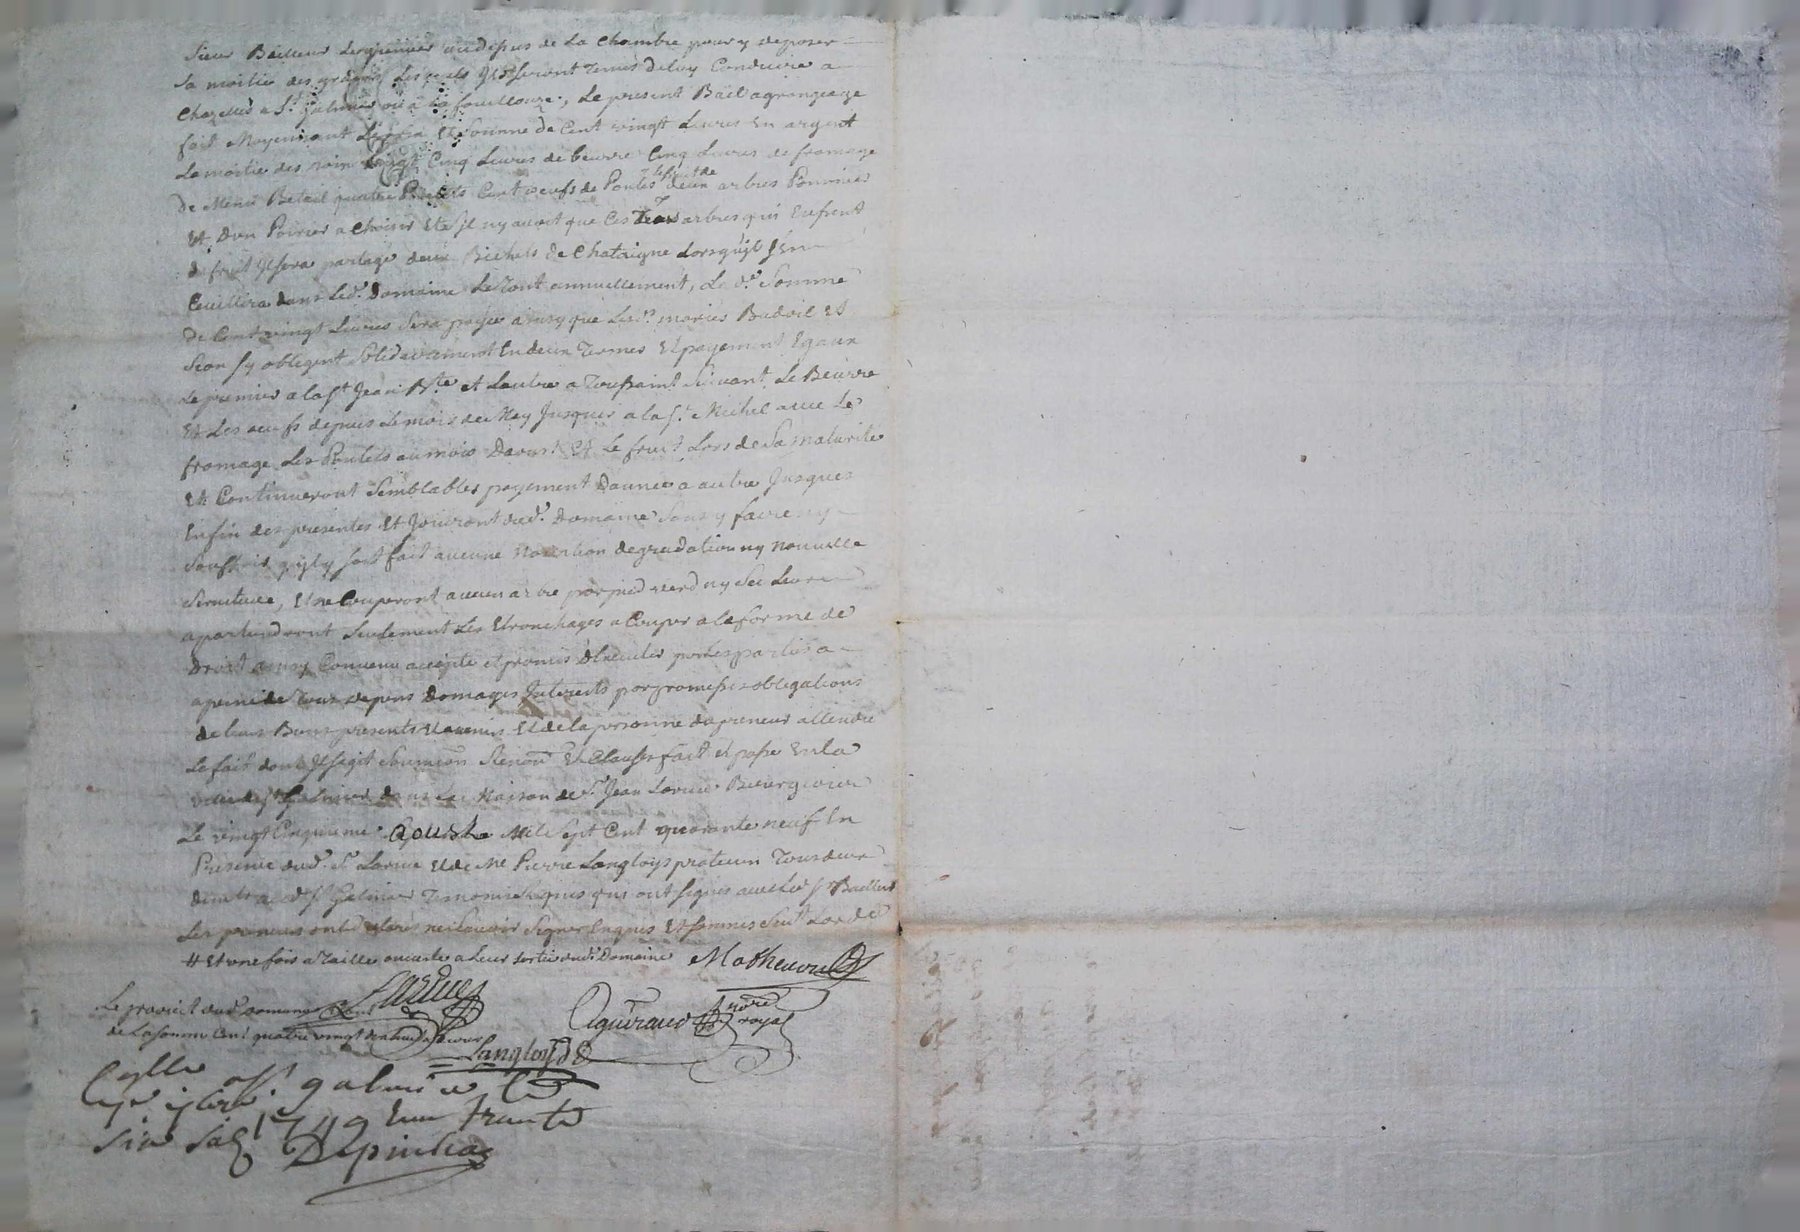 Sieur Bailleur Le grenier audessus de La Chambre pour y deposer
Sa moitié des grains Lesquels Ils seront Tenus de luy Conduire a
Chazelles a St. Galmier ou a La fouillouze, Le present Bail a grangeage
fait Moyennant Le prix Et Somme de Cent vingt Livres En argent
La moitié des noix vingt Cinq Livres de beurre Cinq Livres de fromage
De Menu Betail quatre Poulets Cent oeufs de Poules le fruit de deux arbres Pommier
Et D'un Poirier a Choisir Et s'Il ny avoit que Ces Trois arbres qui Eussent
du fruit Il sera partagé deux Bichets de Chataigne Lorsqu'il s'En
Ceuillira dans Led. Domaine Le Tout annuellement, La de. Somme
De Cent vingt Livres Sera payée ainsy que Lesd. mariés Badoil Et
Sion s'y obligent Solidairement En deux Termes Et payement Egaux
Le premier a la St Jean Bte Et Lautre a Toussaint Suivant Le Beurre
Et Les oeufs depuis Le mois de May Jusques a la St. Michel avec Le
fromage Les Poulets au mois Daoust Et Le fruit Lors de Sa maturité
Et Continueront Semblables payement Dannée a autre Jusques
Enfin des presentes Et Jouiront dud. Domaine Sans y faire ny
Souffrir qu'il y soit fait aucune Novation degradation ny nouvelle
Servitude, Et ne Couperont aucun arbre par pied verd ny Sec Leur
apartiendront Seulement Les Etronchages a Couper a la forme de
Droit ainsy Convenu accepté et promis d'Executer par Les parties a
a peine de Tous depens Domages Interests par promesses obligations
de leurs Biens presents Et avenir Et de la personne du preneur attendu
Le fait dont Il s'agit Soumion Renon Et Clauses fait et passé En la
ville de St Galmier dans La Maison de Sr. Jean Larue Bourgeois
Le vingt Cinquieme Aoust Mil Sept Cent quarante neuf En
Presence dud. Sr. Larue Et de Me Pierre Langloys praticien Tous deux
dud. St Galmier Temoins Requis qui ont signés avec Led. Sr Bailleur
Les preneurs ont declarés ne scavoir Signer Enquis Et sommés
# Et une fois a Taille ouverte a Leur Sortie dud. Domaine Mathevon
Larue
Le produit dud. Domaine
de La Somme Cent quatre vingt
Aguiraud nore royal
Langloys
Cslle a St. galmier Le
1749
Depinhac